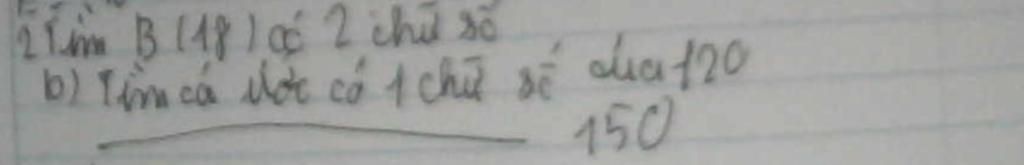 2 Tìm B (18) có 2 chữ số
b) Tìm cá ước có 1 chữ số của 120
150